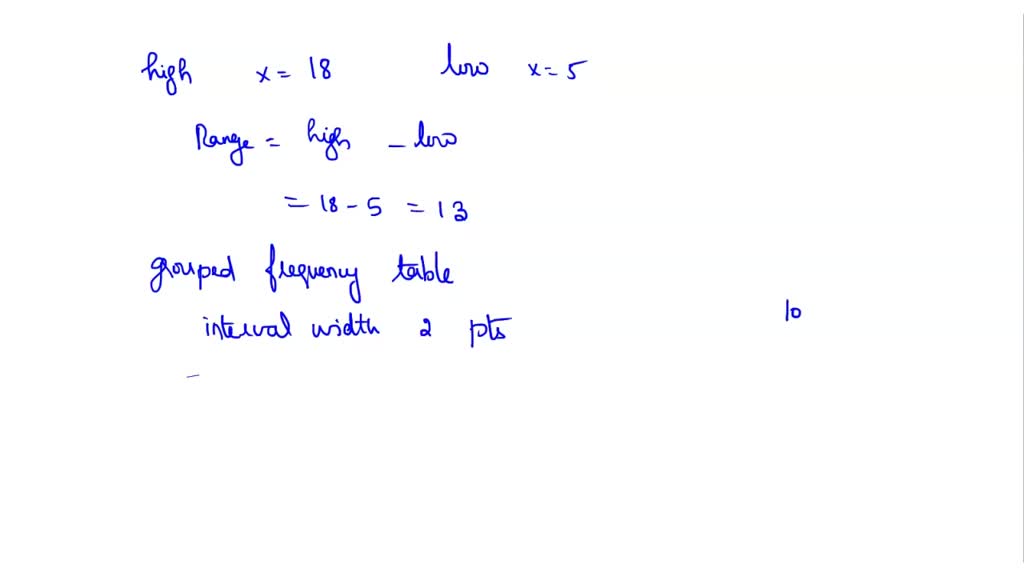 high x = 18 low x = 5
Range = high - low
= 18 - 5 = 13
grouped frequency table
interval width 2 pts
10